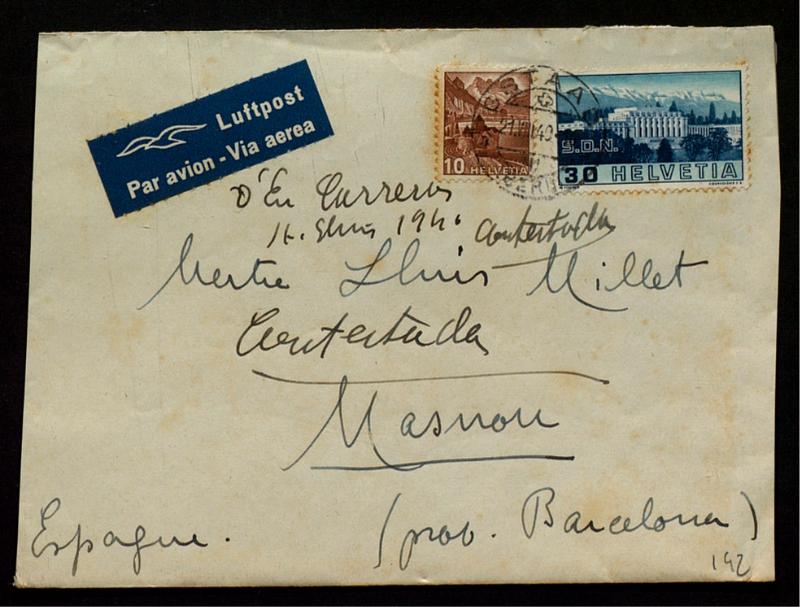 Luftpost
Par avion - Via aerea
GSTAAD
BERN
10 HELVETIA
S.D.N.
30 HELVETIA
D'En Carreras
1940 Contestada
Mestre Lluís Millet
Contestada
Masnou
Espagne.
(prov. Barcelona)
142